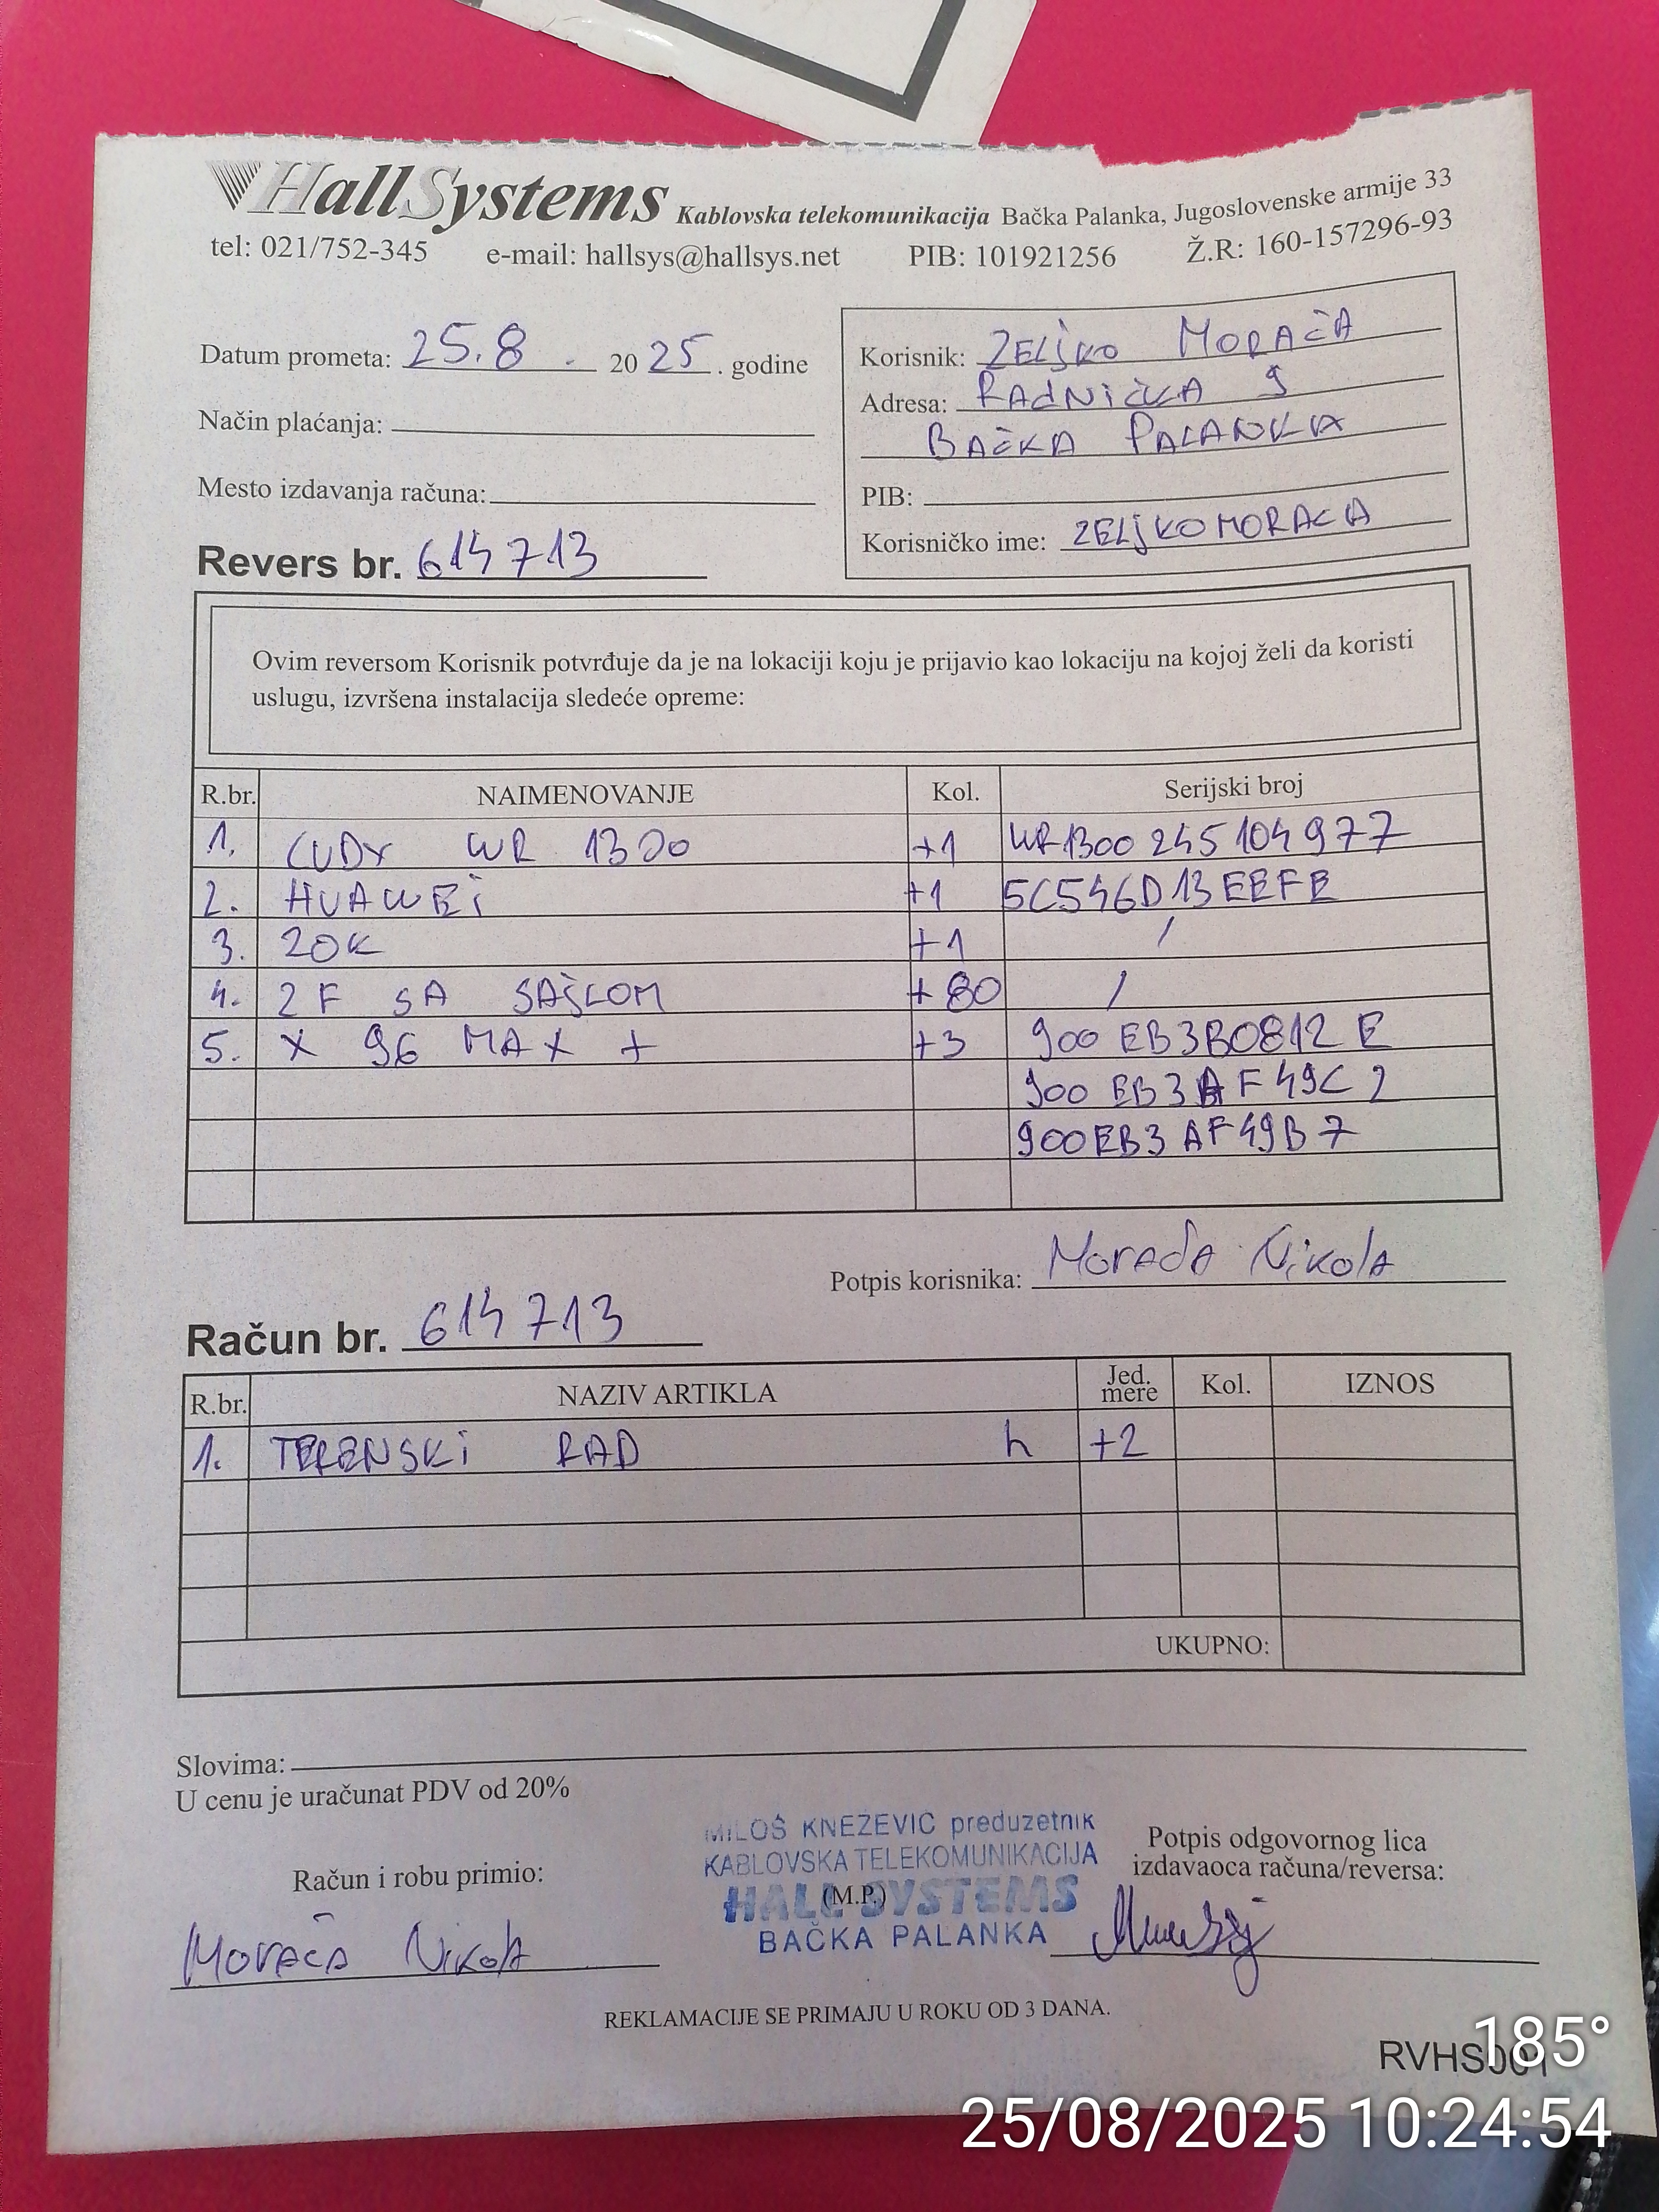 HallSystems Kablovska telekomunikacija Bačka Palanka, Jugoslovenske armije 33
tel: 021/752-345 e-mail: hallsys@hallsys.net PIB: 101921256 Ž.R: 160-157296-93
Datum prometa: 25.8. 2025. godine
Način plaćanja:
Mesto izdavanja računa:
Revers br. 614713
Korisnik: ZELJKO MORAČA
Adresa: RADNIČKA 9
BAČKA PALANKA
PIB:
Korisničko ime: ZELJKOMORACA
Ovim reversom Korisnik potvrđuje da je na lokaciji koju je prijavio kao lokaciju na kojoj želi da koristi
uslugu, izvršena instalacija sledeće opreme:
R.br. NAIMENOVANJE Kol. Serijski broj
1. CUDY WR 1300 +1 WR1300245104977
2. HUAWEi +1 5C546D13EEFE
3. ZOK +1 /
4. 2F SA SAJLOM +80 /
5. X 96 MAX + +3 900EB3B0812E
900EB3AF49C2
900EB3AF49B7
Potpis korisnika: Morača Nikola
Račun br. 614713
R.br. NAZIV ARTIKLA Jed. mere Kol. IZNOS
1. TERENSKI RAD h +2
UKUPNO:
Slovima:
U cenu je uračunat PDV od 20%
MILOŠ KNEŽEVIĆ preduzetnik
KABLOVSKA TELEKOMUNIKACIJA
HALL SYSTEMS
(M.P.)
BAČKA PALANKA
Potpis odgovornog lica
izdavaoca računa/reversa:
Račun i robu primio:
Morača Nikola
REKLAMACIJE SE PRIMAJU U ROKU OD 3 DANA.
RVHS001
185°
25/08/2025 10:24:54